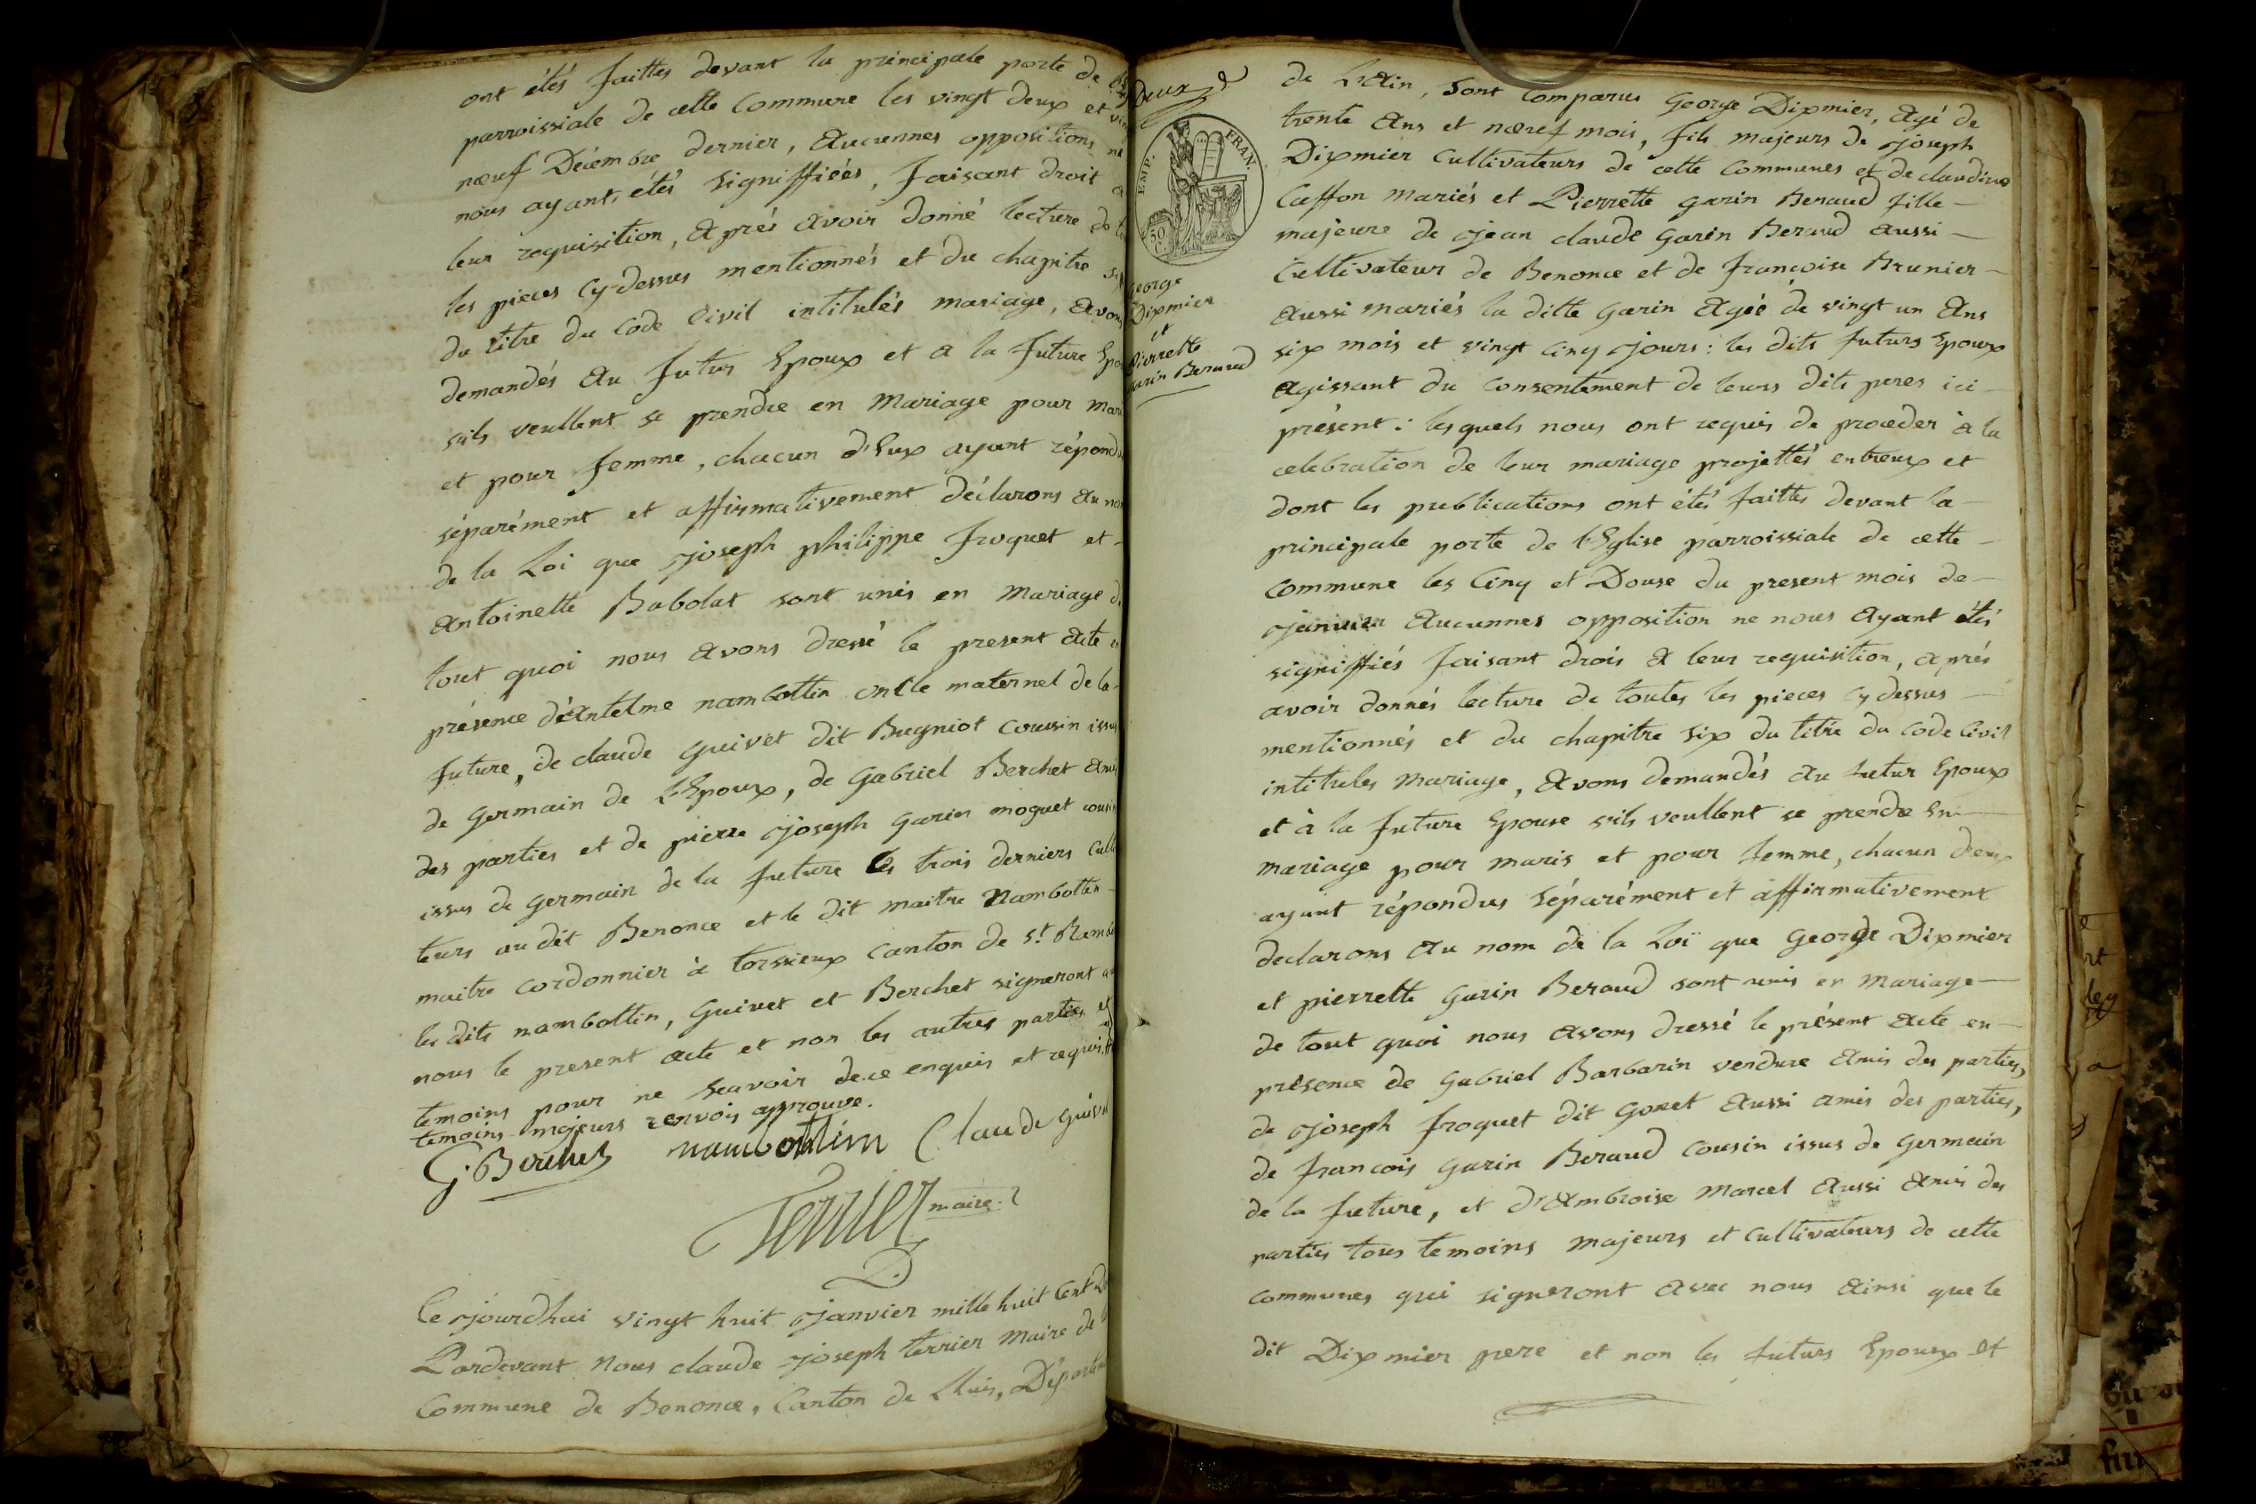 ont étés faittes devant la principale porte de
parroissiale de cette commune les vingt deux et
nœuf Décembre dernier, Aucunnes oppositions ne
nous ayants étés signiffiées, faisant droit a
leur requisition, Aprés avoir donné lecture de
les pieces Cy-dessus mentionnés et du chapitre
du titre du Code Civil intitulés mariage, avons
demandés au futur Epoux et a la future
sils veullent se prendre en Mariage pour
et pour femme, chacun d'Eux ayant répondu
séparément et affirmativement déclarons au nom
de la Loi que joseph philippe froquet et -
Antoinette Babolat sont unis en Mariage de
tout quoi nous avons dressé le present acte
présence d'Antelme nambottin oncle maternel de la -
future, de claude guivet dit Bugniot cousin issus
de germain de l'Epoux, de gabriel Berchet amis
des parties et de pierre joseph garin moguet cousin
issus de germain de la future les trois derniers
teurs au dit Benonce et le dit maitre Nambottin
maitre cordonnier à torssieux canton de St
les dits nambottin, guivet et Berchet signeront
nous le present acte et non les autres parties et
temoins pour ne scavoir de ce enquis et requis
temoins majeurs renvois approuve.
G. Berchet nambottin Claude
Terrier maire
Ce jourdhui vingt huit janvier mille huit Cent
Pardevant Nous claude joseph terrier Maire de
Commune de Benonce, Canton de Lhuis,
Deux
EMP. FRAN.
50 C.
george
Dixmier
et
Pierrette
garin Beraud
de L'Ain, sont Comparus George Dixmier, Agé de
trente Ans et nœuf mois, fils majeurs de joseph
Dixmier Cultivateurs de cette Communes et de claudine
Caffon mariés et Pierrette garin Beraud fille -
majeure de jean claude garin Beraud Aussi -
Cultivateur de Benonce et de francoise Brunier -
Aussi mariés la ditte garin Agée de vingt un Ans
six mois et vingt cinq jours : les dits futurs Epoux
Agissant du consentement de leurs dits peres ici
présent : lesquels nous ont requis de proceder à la
celebration de leur mariage projettés entreux et
dont les publications ont étés faittes devant la
principale porte de l'Eglise parroissiale de cette -
Commune les Cinq et Douse du present mois de -
janvier Aucunnes opposition ne nous Ayant étés
signiffiés faisant drois a leur requisition, aprés
avoir donnés lecture de toutes les pieces Cydessus -
mentionnés et du chapitre six du titre du Code Civil
intitules Mariage, Avons demandés au futur Epoux
et à la future Epouse sils veullent se prendre En -
mariage pour maris et pour femme, chacun d'eux
ayant répondus séparément et affirmativement
declarons au nom de la Loi que George Dixmier
et pierrette garin Beraud sont unis en Mariage -
de tout quoi nous avons dressé le présent Acte en -
présence de gabriel Barbarin verdure Amis des parties,
de joseph froquet dit gonet Aussi amis des parties,
de francois garin Beraud cousin issus de germain
de la future, et d'Ambroise Marcel Aussi Amis des
parties tous temoins majeurs et Cultivateurs de cette
communes qui signeront avec nous Ainsi que le
dit Dixmier pere et non les futurs Epoux et